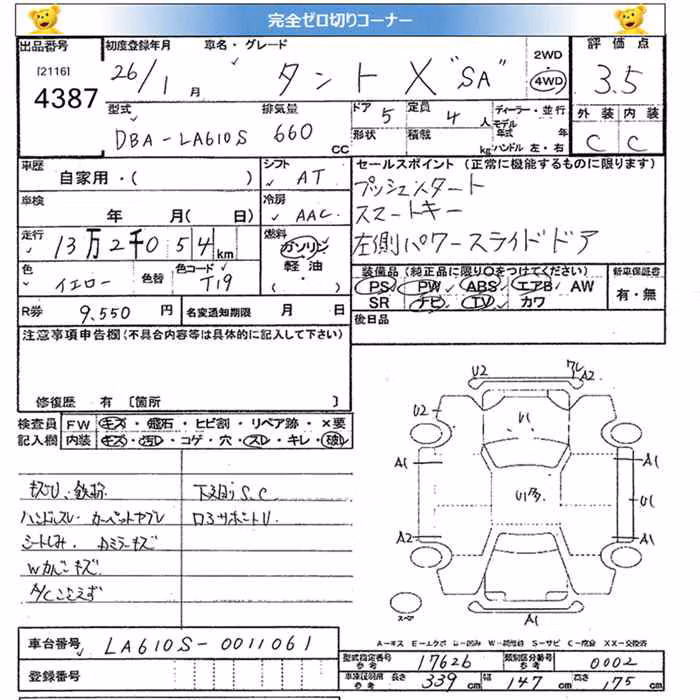 完全ゼロ切りコーナー
出品番号
[2116]
4387
初度登録年月 車名・グレード
26/1月 タント X "SA"
2WD
4WD
評価点
3.5
外装 内装
C C
型式
DBA-LA610S
排気量
660 cc
ドア 5
定員 4人
形状
積載 kg
ディーラー・並行
モデル年式 年
ハンドル 左・右
車歴
自家用・( )
シフト
AT
車検
年 月( 日)
冷房
AAC
走行
13万2千054km
燃料
ガソリン
軽油
( ・ )
色
イエロー
色替
色コード
T19
R券
9,550 円
名変通知期限 月 日
セールスポイント (正常に機能するものに限ります)
プッシュスタート
スマートキー
左側パワースライドドア
装備品 (純正品に限り○をつけてください)
PS PW ABS エアB AW
SR ナビ TV カワ
新車保証書
有・無
後日品
注意事項申告欄 (不具合内容等は具体的に記入して下さい)
修復歴 有 〔箇所 〕
検査員記入欄
FW キズ・飛石・ヒビ割・リペア跡・×要
内装 キズ・汚レ・コゲ・穴・スレ・キレ・破レ
キズU、鉄粉
ハンドルスレ・カーペットヤブレ
シートしみ、
キズ
A/C
下
U2
A2
U2
U1
A1
A1
U1
A2
A2
A1
車台番号
LA610S-0011061
登録番号
型式指定番号 参考 17626
類別区分番号 参考 0002
車検証用 参考 長さ 339cm 幅 147cm 高さ 175cm